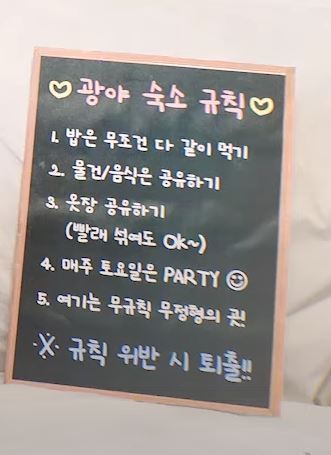 ♡광야 숙소 규칙♡
1. 밥은 무조건 다 같이 먹기
2. 물건/음식은 공유하기
3. 옷장 공유하기
(빨래 섞여도 OK~)
4. 매주 토요일은 PARTY ☺
5. 여기는 무규칙 무정형의 곳!
※ 규칙 위반 시 퇴출!!